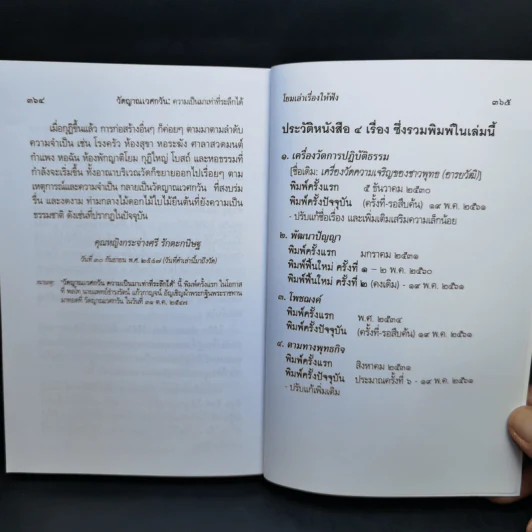 ๓๖๔
วัดญาณเวศกวัน: ความเป็นมาเท่าที่ระลึกได้
เมื่อกุฏิขึ้นแล้ว การก่อสร้างอื่นๆ ก็ค่อยๆ ตามมาตามลำดับ
ความจำเป็น เช่น โรงครัว ห้องสุขา หอระฆัง ศาลาสวดมนต์
กำแพง หอฉัน ห้องพักญาติโยม กุฏิใหญ่ โบสถ์ และหอธรรมที่
กำลังจะเริ่มขึ้น ทั้งอาณาบริเวณวัดก็ขยายออกไปเรื่อยๆ ตาม
เหตุการณ์และความจำเป็น กลายเป็นวัดญาณเวศกวัน ที่สงบร่ม
รื่น และงดงาม ท่ามกลางไม้ดอกไม้ใบไม้ยืนต้นที่ยังความเป็น
ธรรมชาติ ดังเช่นที่ปรากฏในปัจจุบัน
คุณหญิงกระจ่างศรี รักตะกนิษฐ
วันที่ ๓๐ กันยายน พ.ศ. ๒๕๔๗ (วันที่คำเล่านี้มาถึงวัด)
หมายเหตุ: "วัดญาณเวศกวัน ความเป็นมาเท่าที่ระลึกได้" นี้ พิมพ์ครั้งแรก ในโอกาส
ที่ พลโท นายแพทย์ดำรงรัตน์ แก้วกาญจน์ อัญเชิญผ้าพระกฐินพระราชทาน
มาทอดที่ วัดญาณเวศกวัน ในวันที่ ๓๑ ต.ค. ๒๕๔๗
โยมเล่าเรื่องให้ฟัง
๓๖๕
ประวัติหนังสือ ๔ เรื่อง ซึ่งรวมพิมพ์ในเล่มนี้
๑. เครื่องวัดการปฏิบัติธรรม
[ชื่อเดิม: เครื่องวัดความเจริญของชาวพุทธ (อารยวัฒิ)]
พิมพ์ครั้งแรก ๕ ธันวาคม ๒๕๓๐
พิมพ์ครั้งปัจจุบัน (ครั้งที่-รอสืบค้น) ๑๙ พ.ค. ๒๕๖๑
- ปรับแก้ชื่อเรื่อง และเพิ่มเติมเสริมความเล็กน้อย
๒. พัฒนาปัญญา
พิมพ์ครั้งแรก มกราคม ๒๕๓๑
พิมพ์พื้นใหม่ ครั้งที่ ๑ – ๒ พ.ค. ๒๕๖๐
พิมพ์พื้นใหม่ ครั้งที่ ๒ (คงเดิม) - ๑๙ พ.ค. ๒๕๖๑
๓. โพชฌงค์
พิมพ์ครั้งแรก พ.ศ. ๒๕๓๔
พิมพ์ครั้งปัจจุบัน (ครั้งที่-รอสืบค้น) ๑๙ พ.ค. ๒๕๖๑
๔. ตามทางพุทธกิจ
พิมพ์ครั้งแรก สิงหาคม ๒๕๓๑
พิมพ์ครั้งปัจจุบัน ประมาณครั้งที่ ๖ - ๑๙ พ.ค. ๒๕๖๑
- ปรับแก้เพิ่มเติม